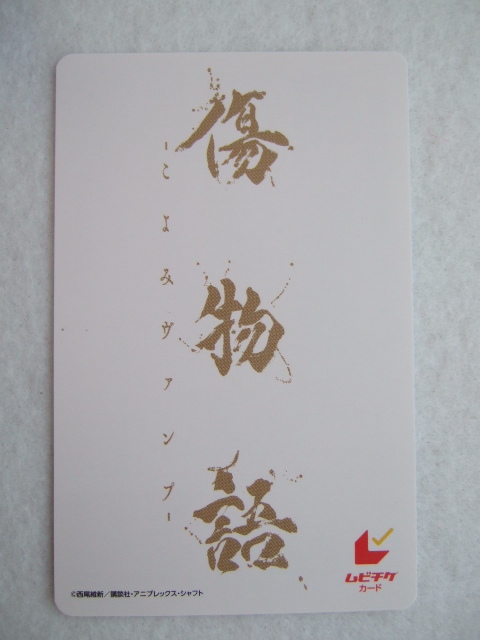 傷物語
-こよみヴァンプ-
©西尾維新/講談社・アニプレックス・シャフト
ムビチケ
カード